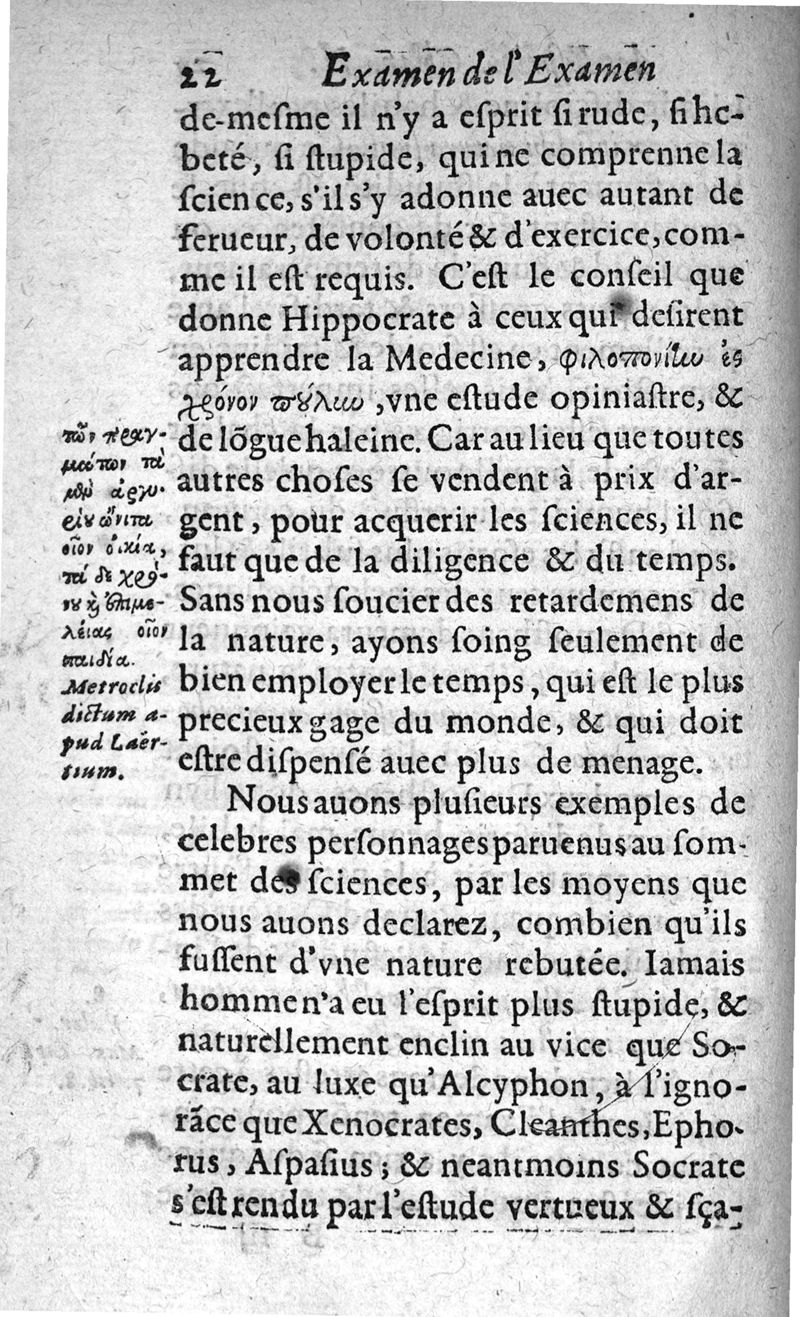 22 Examen de l'Examen
de-meſme il n'y a eſprit ſi rude, ſi he-
beté, ſi ſtupide, qui ne comprenne la
ſcience, s'il s'y adonne auec autant de
ferueur, de volonté & d'exercice, com-
me il eſt requis. C'eſt le conſeil que
donne Hippocrate à ceux qui deſirent
apprendre la Medecine, φιλοπονίην ἐς
χρόνον πουλιω, vne eſtude opiniaſtre, &
de lõgue haleine. Car au lieu que toutes
autres choſes ſe vendent à prix d'ar-
gent, pour acquerir les ſciences, il ne
faut que de la diligence & du temps.
Sans nous ſoucier des retardemens de
la nature, ayons ſoing ſeulement de
bien employer le temps, qui eſt le plus
precieux gage du monde, & qui doit
eſtre diſpenſé auec plus de menage.
Nous auons pluſieurs exemples de
celebres perſonnages paruenus au ſom-
met des ſciences, par les moyens que
nous auons declarez, combien qu'ils
fuſſent d'vne nature rebutée. Iamais
homme n'a eu l'eſprit plus ſtupide, &
naturellement enclin au vice que So-
crate, au luxe qu'Alcyphon, à l'igno-
rãce que Xenocrates, Cleanthes, Epho-
rus, Aſpaſius; & neantmoins Socrate
s'eſt rendu par l'eſtude vertueux & ſça-
τῶν πραγ-
μάτων τὰ
μὲν ἀργυ-
ρίου ὤνιτα
οἷον οἰκία,
τά δε χρό-
νου καὶ ἐπιμε-
λείας οἷον
παιδία.
Metroclis
dictum a-
pud Laër-
tium.